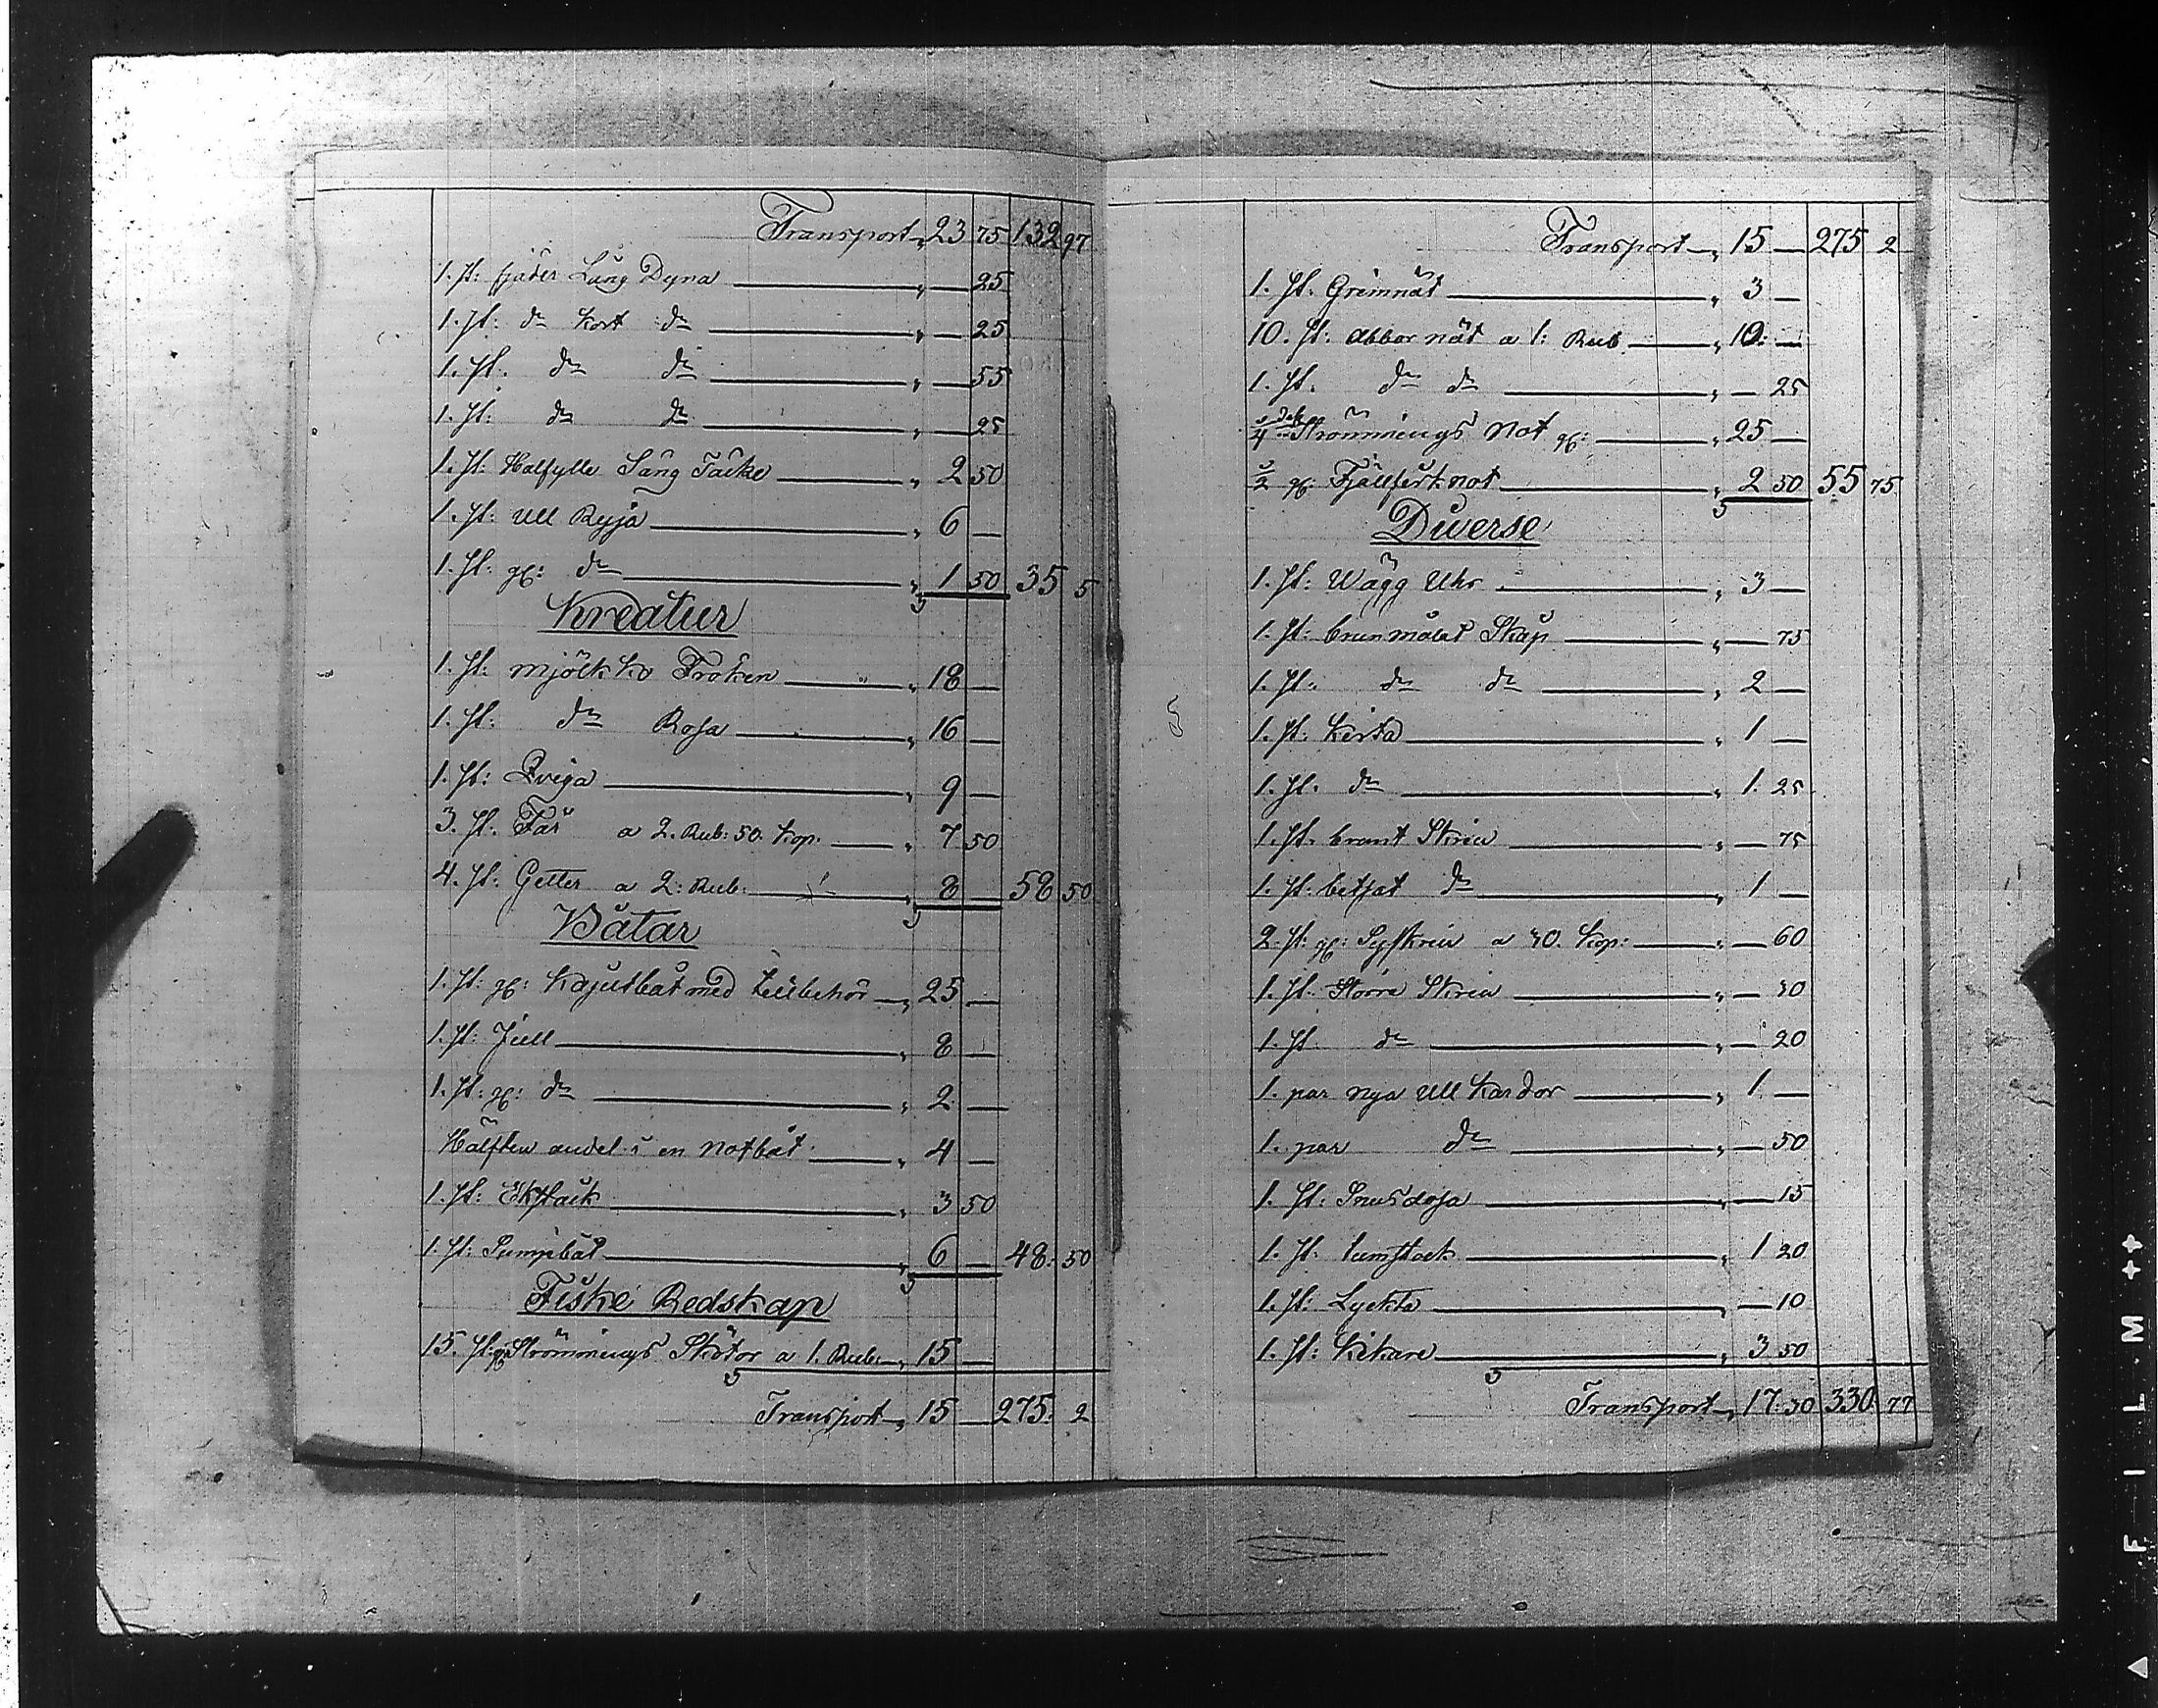 Transport „ 23 75 132 97
1. st: fjäder Lång Dyna „ — 25
1. st: do Kort do „ — 25
1. st. do do „ — 55
1. st: do do „ — 25
1. st: Halfylle Säng Täcke „ 2 50
1. st: Ull Ryja „ 6 —
1. st: gl: do „ 1 50 35 5
Kreatur
1. st: mjölk ko Fröken „ 18 —
1. st: do Rosa „ 16 —
1. st: Qviga „ 9 —
3. st. Får a 2. Rub: 50. kop. „ 7 50
4. st: Getter a 2: Rub: „ 8 — 58 50
Båtar
1. st: gl: Kajutbåt med tillbehör „ 25 —
1. st: Jull „ 8 —
1. st: gl: do „ 2 —
Hälften andel i en Notbåt „ 4 —
1. st: Ekstock „ 3 50
1. st: Sumpbåt „ 6 — 48. 50
Fiske Redskap
15. st: gl: Strömmings Skötor a 1. Rub: „ 15 —
Transport „ 15 — 275. 2
Transport „ 15 — 275 2
1. st. Grimnät „ 3 —
10. st: Abbor nät a 1: Rub „ 10: —
1. st. do do „ — 25
1/4 dels Strömmings Not gl: „ 25 —
1/2 gl: Fjällfisk not „ 2 50 55 75
Diverse
1. st: Wägg Uhr „ 3 —
1. st: brunmålat Skåp „ — 75
1. st. do do „ 2 —
1. st: Kista „ 1 —
1. st. do „ 1. 25
1. st. brunt Skrin „ — 75
1. st: betsat do „ 1 —
2. st: gl: Syskrin a 30. kop: „ — 60
1. st: Större Skrin „ — 30
1. st do „ — 20
1. par nya Ull Kardor „ 1 —
1. par do „ — 50
1. st: Snusdosa „ — 15
1. st: tumstock „ 1 20
1. st: Lyckta „ — 10
1. st: Kikare „ 3 50
Transport „ 17. 30 330. 77
FILM